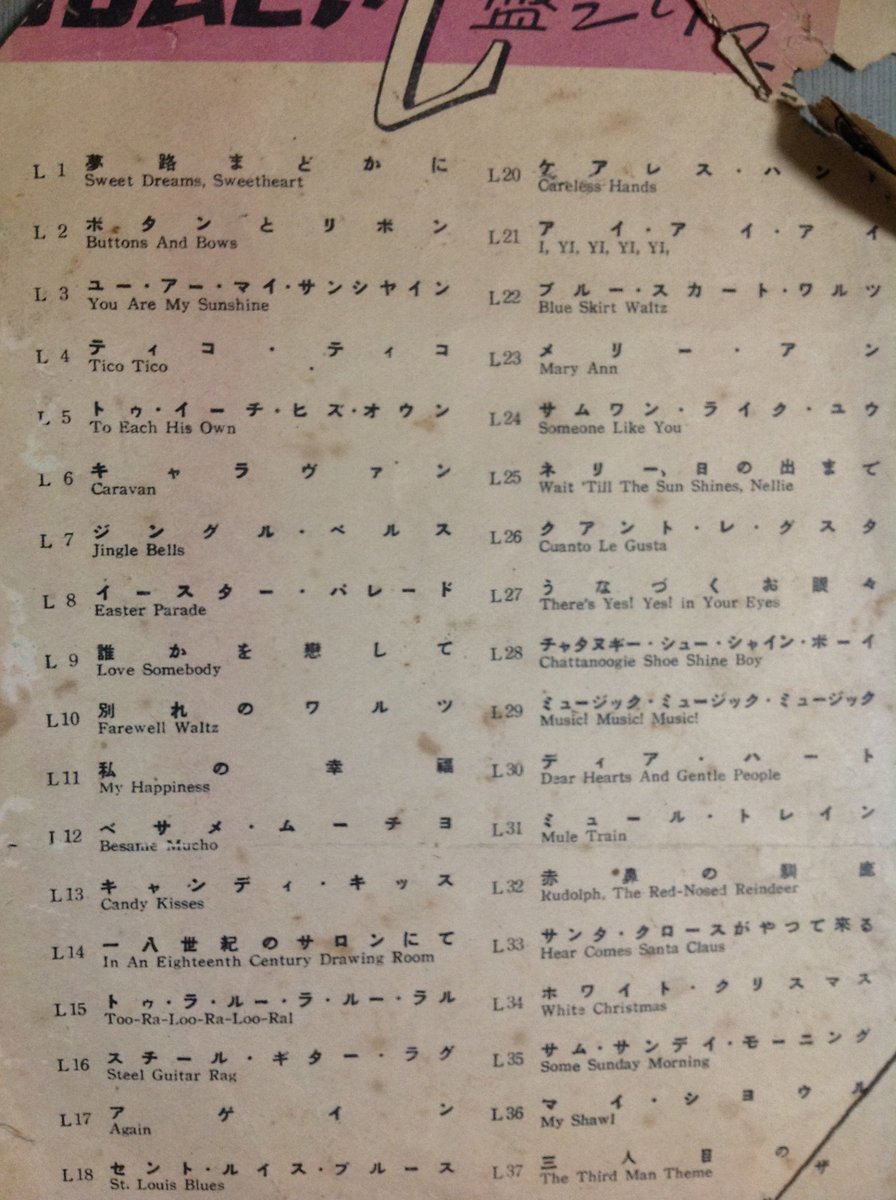 盤
L 1 夢路まどかに
Sweet Dreams, Sweetheart
L 2 ボタンとリボン
Buttons And Bows
L 3 ユー・アー・マイ・サンシヤイン
You Are My Sunshine
L 4 ティコ・ティコ
Tico Tico
L 5 トゥ・イーチ・ヒズ・オウン
To Each His Own
L 6 キャラヴァン
Caravan
L 7 ジングル・ベルス
Jingle Bells
L 8 イースター・パレード
Easter Parade
L 9 誰かを戀して
Love Somebody
L10 別れのワルツ
Farewell Waltz
L11 私の幸福
My Happiness
L12 ベサメ・ムーチヨ
Besame Mucho
L13 キャンディ・キッス
Candy Kisses
L14 一八世紀のサロンにて
In An Eighteenth Century Drawing Room
L15 トゥ・ラ・ルー・ラ・ルー・ラル
Too-Ra-Loo-Ra-Loo-Ral
L16 スチール・ギター・ラグ
Steel Guitar Rag
L17 アゲイン
Again
L18 セント・ルイス・ブルース
St. Louis Blues
L20 ケアレス・ハンド
Careless Hands
L21 アイ・アイ・アイ
I, YI, YI, YI, YI,
L22 ブルー・スカート・ワルツ
Blue Skirt Waltz
L23 メリー・アン
Mary Ann
L24 サムワン・ライク・ユウ
Someone Like You
L25 ネリー、日の出まで
Wait 'Till The Sun Shines, Nellie
L26 クアント・レ・グスタ
Cuanto Le Gusta
L27 うなづくお眼々
There's Yes! Yes! in Your Eyes
L28 チャタヌギー・シュー・シャイン・ボーイ
Chattanoogie Shoe Shine Boy
L29 ミュージック・ミュージック・ミュージック
Music! Music! Music!
L30 ディア・ハート
Dear Hearts And Gentle People
L31 ミュール・トレイン
Mule Train
L32 赤鼻の馴鹿
Rudolph, The Red-Nosed Reindeer
L33 サンタ・クロースがやつて來る
Hear Comes Santa Claus
L34 ホワイト・クリスマス
White Christmas
L35 サム・サンデイ・モーニング
Some Sunday Morning
L36 マイ・シヨウル
My Shawl
L37 三人目の
The Third Man Theme